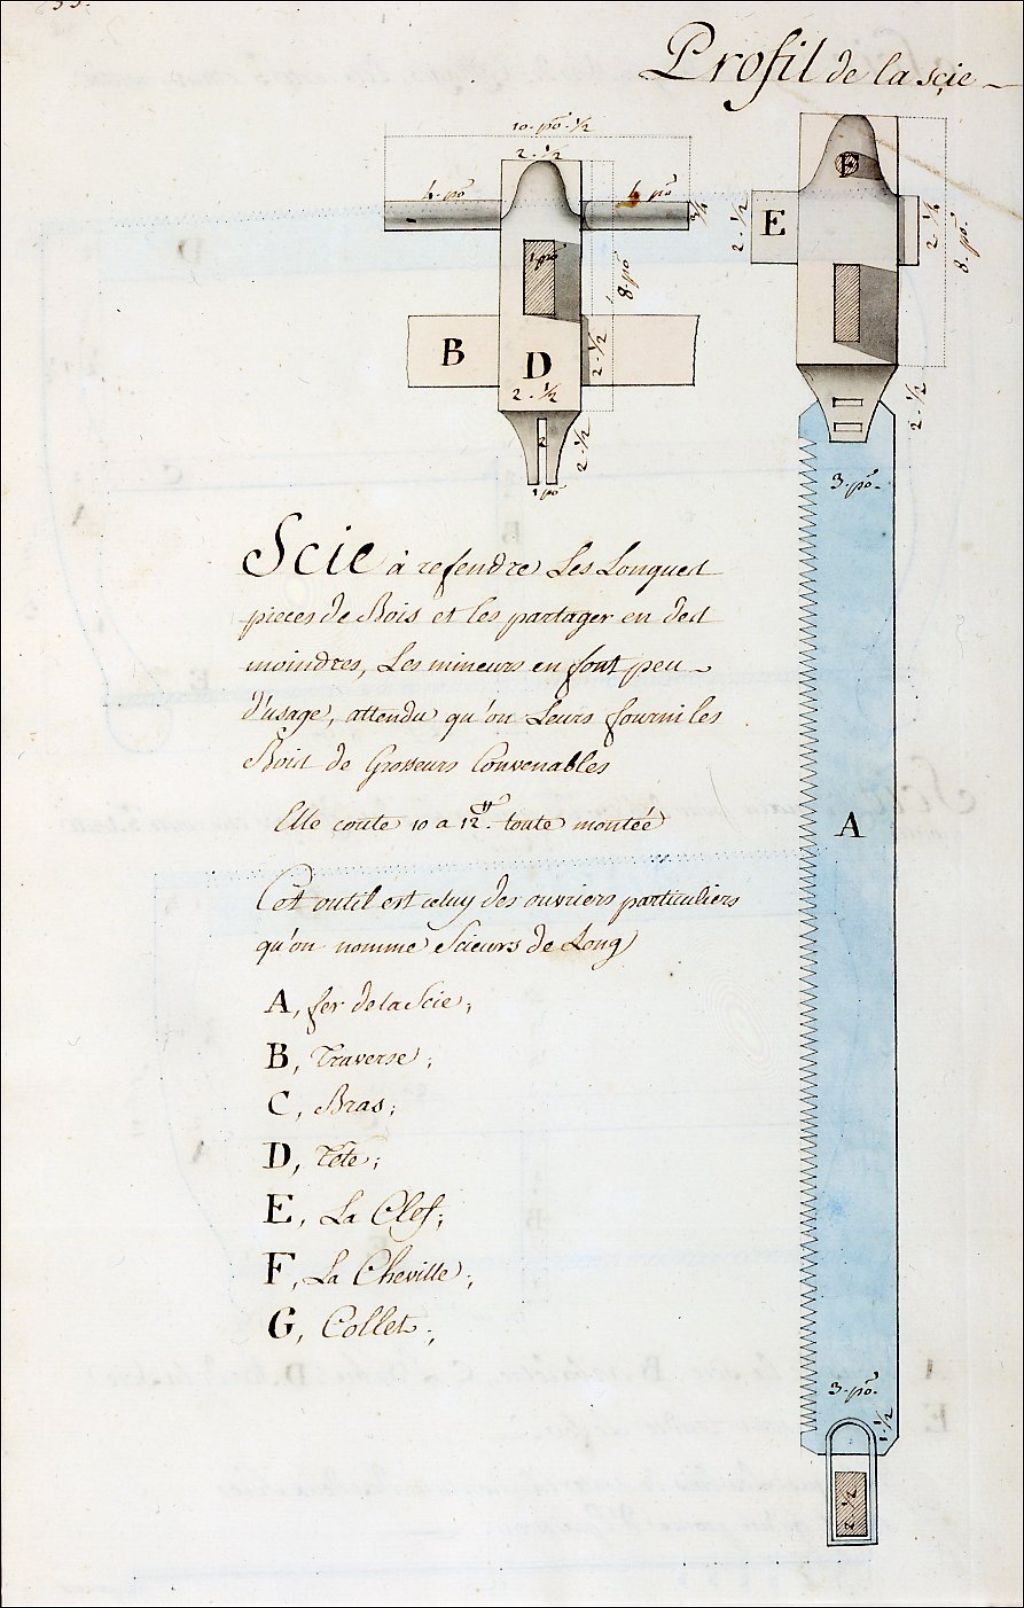 33.
Profil de la scie
10. po. ½
2. ½
4. po
4. po
¾
1 po
8. po
B
D
2. ½
2. ½
2
2. ½
1 po
F
E
2. ½
2. ½
8. po.
2. ½
3. po.
Scie à refendre Les Longues
pieces de Bois et les partager en des
moindres, Les mineurs en font peu
d'usage, attendu qu'on Leurs fourni les
Bois de Grosseurs Convenables
Elle coute 10 a 12.₶ toute montée
A
Cet outil est celuy des ouvriers particuliers
qu'on nomme Scieurs de Long
A, fer de la Scie;
B, Traverse;
C, Bras;
D, Tete;
E, La Clef;
F, La Cheville;
G, Collet;
3. po.
1. ½
2. ½